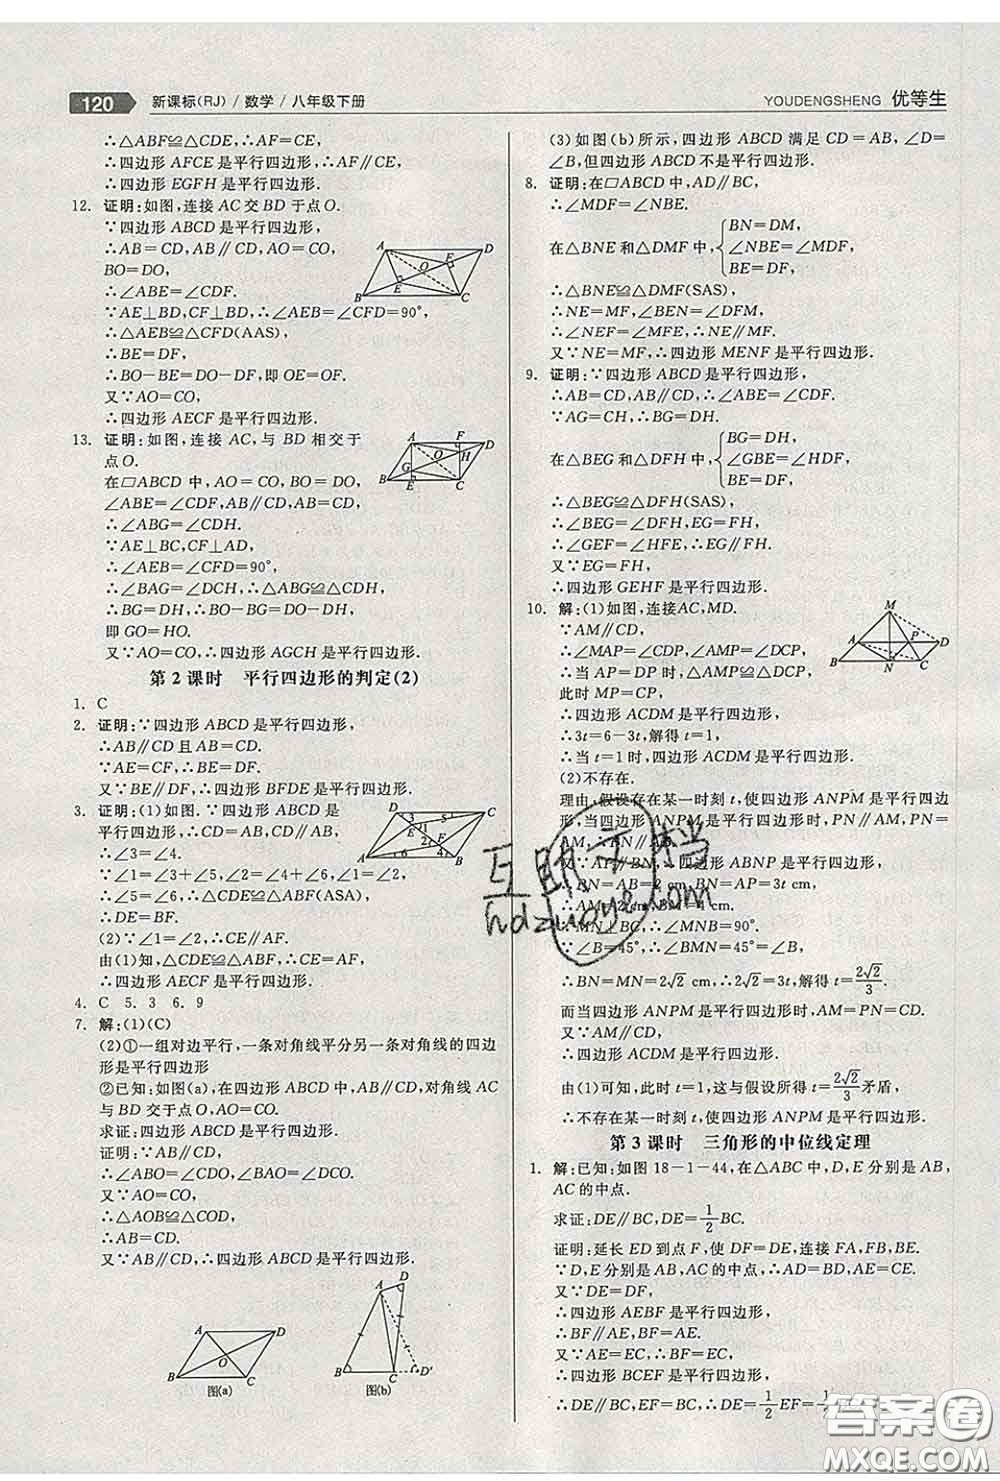 120 新课标(RJ)/数学/八年级下册
YOUDENGSHENG 优等生
∴△ABF≌△CDE,∴AF=CE,
∴四边形AFCE是平行四边形,∴AF∥CE,
∴四边形EGFH是平行四边形.
12. 证明:如图,连接AC交BD于点O.
∵四边形ABCD是平行四边形,
∴AB=CD,AB∥CD,AO=CO,
BO=DO,
∴∠ABE=∠CDF.
∵AE⊥BD,CF⊥BD,∴∠AEB=∠CFD=90°,
∴△AEB≌△CFD(AAS),
∴BE=DF,
∴BO-BE=DO-DF,即OE=OF.
又∵AO=CO,
∴四边形AECF是平行四边形.
13. 证明:如图,连接AC,与BD相交于
点O.
在□ABCD中,AO=CO,BO=DO,
∠ABE=∠CDF,AB=CD,AB∥CD,
∴∠ABG=∠CDH.
∵AE⊥BC,CF⊥AD,
∴∠AEB=∠CFD=90°,
∴∠BAG=∠DCH,∴△ABG≌△CDH,
∴BG=DH,∴BO-BG=DO-DH,
即GO=HO.
又∵AO=CO,∴四边形AGCH是平行四边形.
第2课时 平行四边形的判定(2)
1. C
2. 证明:∵四边形ABCD是平行四边形,
∴AB∥CD且AB=CD.
∵AE=CF,∴BE=DF.
又∵BE∥DF,∴四边形BFDE是平行四边形.
3. 证明:(1)如图.∵四边形ABCD是
平行四边形,∴AB∥CD,
∴∠3=∠4.
∵∠1=∠3+∠5,∠2=∠4+∠6,∠1=∠2,
∴∠5=∠6,∴△CDE≌△ABF(ASA).
∴DE=BF.
(2)∵∠1=∠2,∴CE∥AF.
由(1)知,△CDE≌△ABF,∴CE=AF,
∴四边形AECF是平行四边形.
4. C 5. 3 6. 9
7. 解:(1)(C)
(2)①一组对边平行,一条对角线平分另一条对角线的四边
形是平行四边形
②已知:如图(a),在四边形ABCD中,AB∥CD,对角线AC
与BD交于点O,AO=CO.
求证:四边形ABCD是平行四边形.
证明:∵AB∥CD,
∴∠ABO=∠CDO,∠BAO=∠DCO.
又∵AO=CO,
∴△AOB≌△COD,
∴AB=CD.
又∵AB∥CD,∴四边形ABCD是平行四边形.
图(a) 图(b)
(3)如图(b)所示,四边形ABCD满足CD=AB,∠D=
∠B,但四边形ABCD不是平行四边形.
8. 证明:在□ABCD中,AD∥BC,
∴∠MDF=∠NBE.
在△BNE和△DMF中,{BN=DM, ∠NBE=∠MDF, BE=DF,
∴△BNE≌△DMF(SAS),
∴NE=MF,∠BEN=∠DFM,
∴∠NEF=∠MFE,∴NE∥MF.
又∵NE=MF,∴四边形MENF是平行四边形.
9. 证明:∵四边形ABCD是平行四边形,
∴AB=CD,AB∥CD,∴∠GBE=∠HDF.
∵AG=CH,∴BG=DH.
在△BEG和△DFH中,{BG=DH, ∠GBE=∠HDF, BE=DF,
∴△BEG≌△DFH(SAS),
∴∠BEG=∠DFH,EG=FH,
∴∠GEF=∠HFE,∴EG∥FH.
又∵EG=FH,
∴四边形GEHF是平行四边形.
10. 解:(1)如图,连接AC,MD.
∵AM∥CD,
∴∠MAP=∠CDP,∠AMP=∠DCP,
∴当AP=DP时,△AMP≌△DCP,
此时MP=CP,
∴四边形ACDM是平行四边形,
∴3t=6-3t,解得t=1,
∴当t=1时,四边形ACDM是平行四边形.
(2)不存在.
理由:假设存在某一时刻t,使四边形ANPM是平行四边
形,当四边形ANPM是平行四边形时,PN∥AM,PN=AM,
∴BN∥AP.
又∵AB∥PN,∴四边形ABNP是平行四边形,
∴BN=AP,AB=2cm,BM=4cm.
∵MN⊥BC,∴∠MNB=90°.
∵∠B=45°,∴∠BMN=45°=∠B,
∴BN=MN=2√2 cm,∴2√2=3t,解得t=2√2/3.
而当四边形ANPM是平行四边形时,AM=CD,
又∵AM∥CD,
∴四边形ACDM是平行四边形.
由(1)可知,此时t=1,这与假设所得t=2√2/3矛盾,
∴不存在某一时刻t,使四边形ANPM是平行四边形.
第3课时 三角形的中位线定理
1. 解:已知:如图18-1-44,在△ABC中,D,E分别是AB,
AC的中点.
求证:DE∥BC,DE=1/2BC.
证明:延长ED到点F,使DF=DE,连接FA,FB,BE.
∵D,E分别是AB,AC的中点,∴AD=DB,AE=CE.
又∵DE=DF,
∴四边形AEBF是平行四边形,
∴BF∥AE,BF=AE.
又∵AE=EC,∴BF∥EC,BF=EC,
∴四边形BCEF是平行四边形,
∴EF∥BC,EF=BC,
∴DE∥BC,DE=1/2EF=1/2
互助文档
hdzuoye.com
答案圈
MXQE.COM